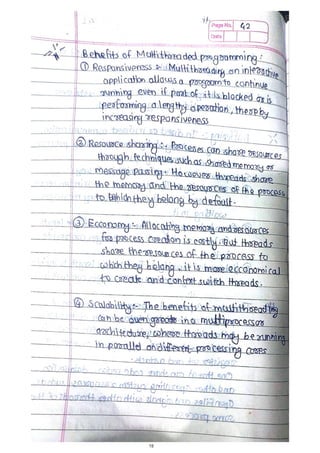 Page No. 42
Date
Benefits of Multithreaded programming:
① Responsiveness :- Multithreading an interactive
application allows a program to continue
running even if part of it is blocked or is
performing a lengthy operation, thereby
increasing responsiveness
② Resource sharing :- Processes can share resources
through techniques such as shared memory or
message passing. However threads share
the memory and the resources of the process
to which they belong by default.
③ Economy :- Allocating memory and resources
for process creation is costly. But threads
share the resources of the process to
which they belong, it is more economical
to create and context switch threads.
④ Scalability :- The benefits of multithreading
can be even greate in a multiprocessor
architecture, where threads may be running
in parallel on different processing cores.